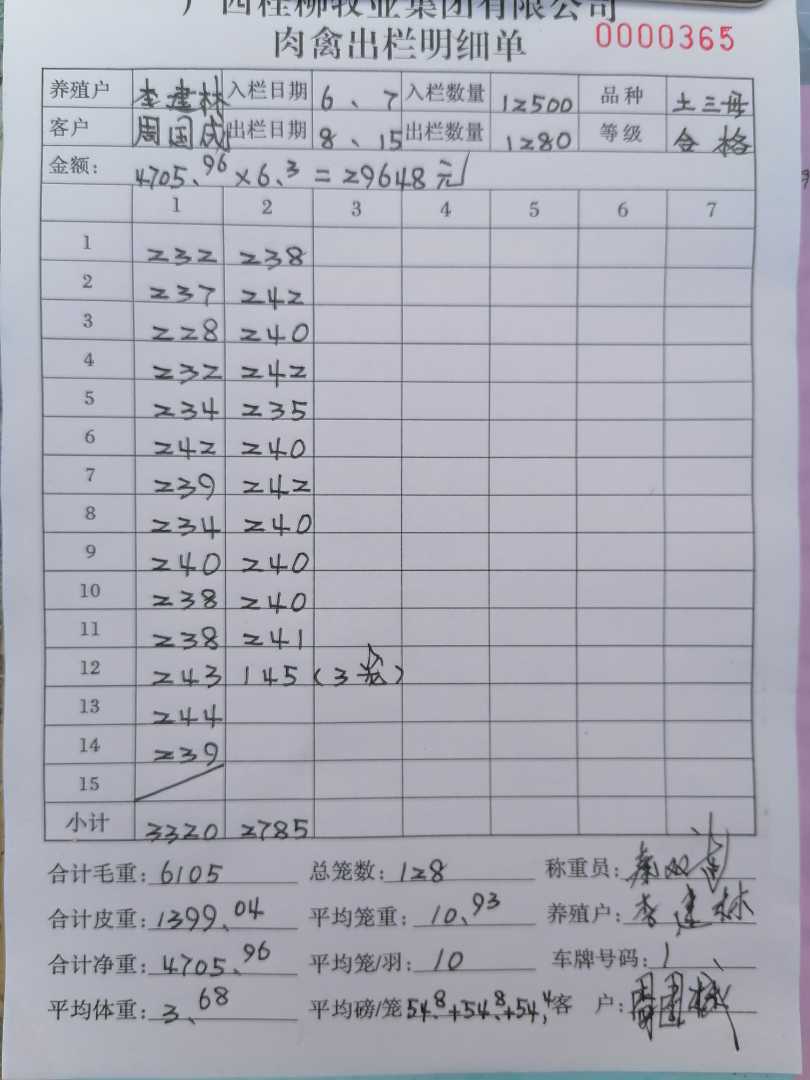 广西桂柳牧业集团有限公司
肉禽出栏明细单 0000365
养殖户 李建林 入栏日期 6、7 入栏数量 12500 品种 土三母
客户 周国成 出栏日期 8、15 出栏数量 1280 等级 合格
金额: 4705.96×6.3=29648元
1 2 3 4 5 6 7
1 232 238
2 237 242
3 228 240
4 232 242
5 234 235
6 242 240
7 239 242
8 234 240
9 240 240
10 238 240
11 238 241
12 243 145(3笼)
13 244
14 239
15
小计 3320 2785
合计毛重: 6105 总笼数: 128 称重员:
合计皮重: 1399.04 平均笼重: 10.93 养殖户: 李建林
合计净重: 4705.96 平均笼/羽: 10 车牌号码:
平均体重: 3.68 平均磅/笼 54.8+54.8+54.4 客户: